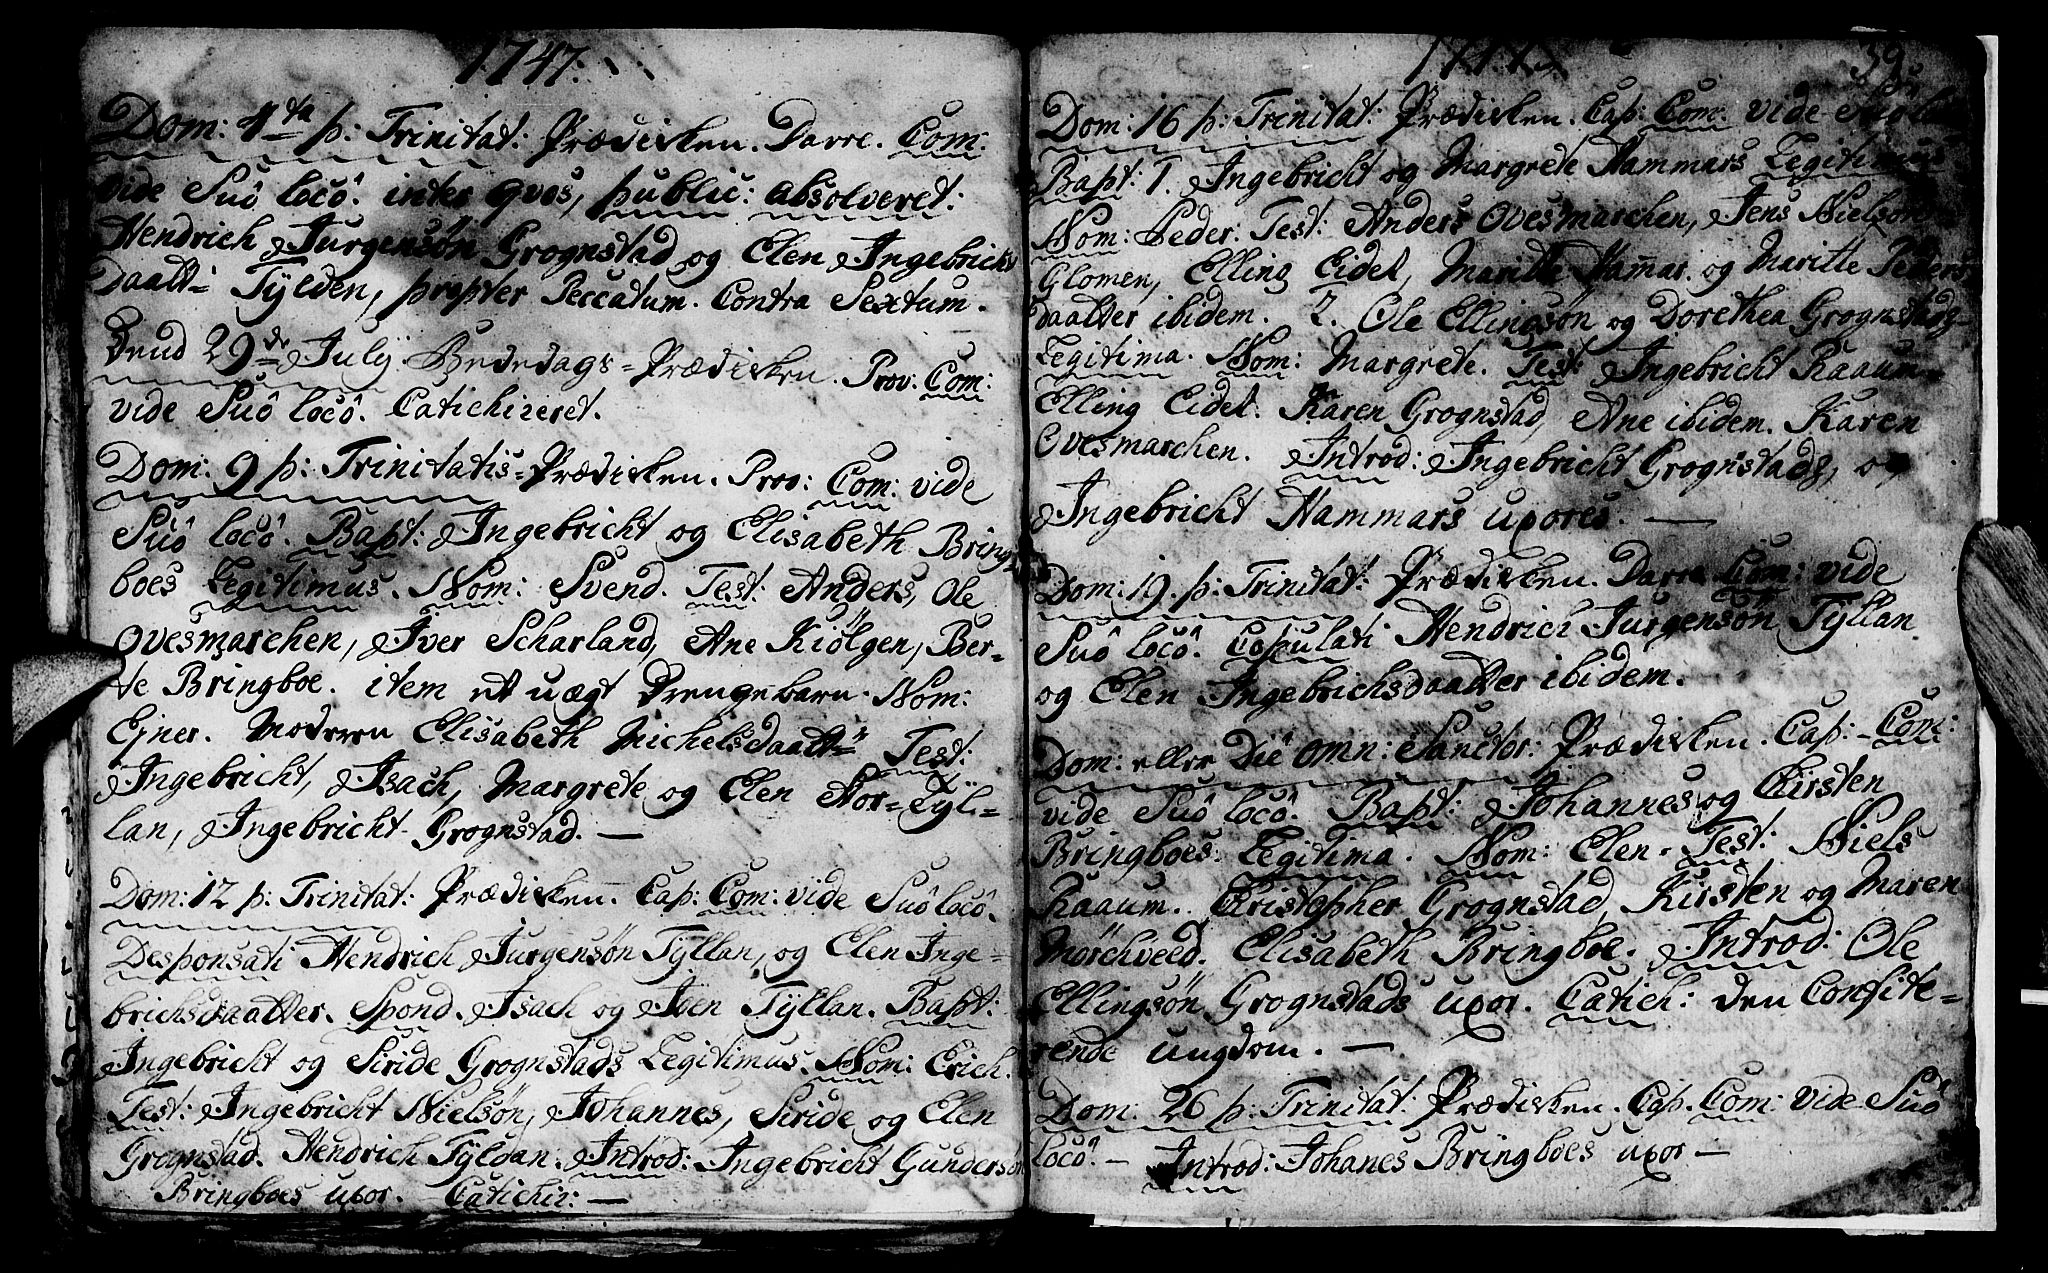 1747.
Dom: 4ta p: Trinitat: Prædicken. Parre. Com:
vide Suô locô. inter qvos, public: absolveret:
Hendrich Jurgensøn Grognstad og Elen Ingebrichs
Daatt= Tylden, propter Peccatum Contra Sextum.
Dend 29de Julij Bededags=Prædicken. Prov: Com:
vide Suô locô. Catichizeret.
Dom: 9 p: Trinitatis=Prædicken. Prov: Com: vide
Suô locô. Bapt: Ingebricht og Elisabeth Bring=
boes Legitimus. Nom: Svend. Test: Anders, Ole
Ovesmarchen, Iver Scharland, Ane Kiølgen, Ber=
te Bringboe. item et uægt Drengebarn. Nom:
Ejner. Moderen Elisabeth Michelsdaatt= Test:
Ingebricht, Isach, Margrete og Elen Nor=Tyl=
lan, Ingebricht Grognstad. —
Dom: 12 p: Trinitat: Prædicken. Cap: Com: vide Suô locô.
Desponsati Hendrich Jurgensøn Tyllan, og Elen Inge=
brichsdaatter. Spond. Isach og Joen Tyllan. Bapt:
Ingebricht og Siride Grognstads Legitimus. Nom: Erich.
Test: Ingebricht Nielsøn, Johannes, Siride og Elen
Grognstad. Hendrich Tyldan. Introd: Ingebricht Gundersøn
Bringboes uxor. Catichiz: —
1747.
39
Dom: 16 p: Trinitat: Prædicken. Cap: Com: vide Suô locô
Bapt: 1. Ingebricht og Margrete Hammars Legitimus
Nom: Peder. Test: Anders Ovesmarchen, Jens Nielsøn
Glomen, Elling Eidel, Maritte Hammar. og Maritte Peders
daatter ibidem. 2. Ole Ellingsøn og Dorethea Grognstads
Legitima. Nom: Margrete. Test: Ingebricht Raaum
Elling Eidel. Karen Grognstad, Ane ibidem. Karen
Ovesmarchen. Introd: Ingebricht Grognstads, og
Ingebricht Hammars uxores. —
Dom: 19. p: Trinitat: Prædicken. Parre Com: vide
Suô locô. Copulati Hendrich Jurgensøn Tyllan
og Elen Ingebrichsdaatter ibidem.
Dom: eller Die omn: Sanctor: Prædicken. Cap: Com:
vide Suô locô. Bapt: Johannes og Kirsten
Bringboes Legitima. Nom: Elen. Test: Niels
Raaum. Christopher Grognstad, Kirsten og Maren
Mørchveed. Elisabeth Bringboe. Introd: Ole
Ellingsøn Grognstads uxor. Catich: den Confite=
rende ungdom. —
Dom: 26 p: Trinitat: Prædicken. Cap. Com: vide Suô
locô. — Introd: Johanes Bringboes uxor —